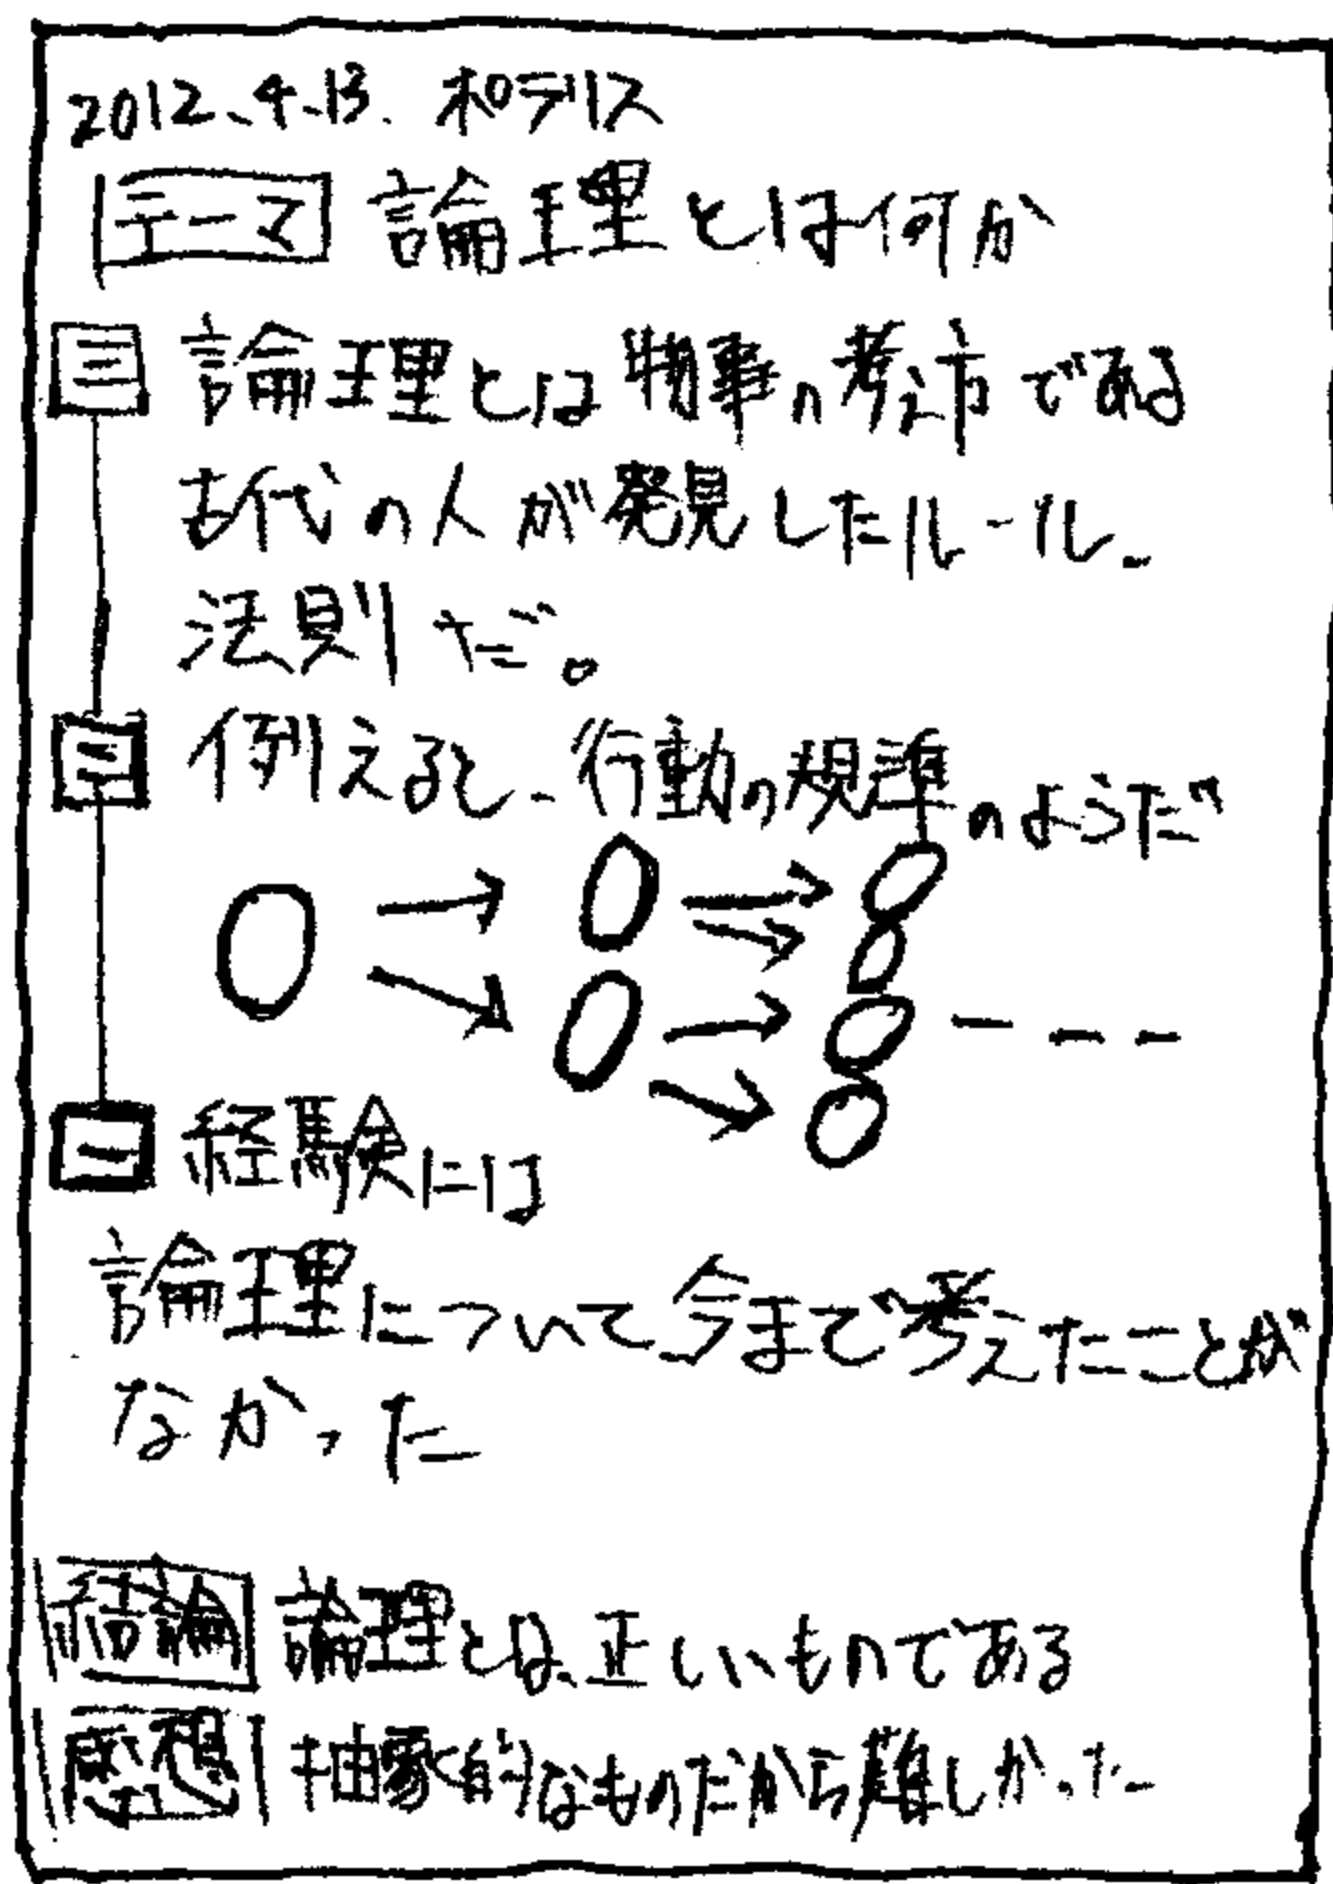 2012.4.13. 和デリス
テーマ 論理とは何か
三 論理とは物事の考え方である
古代の人が発見したルール、
法則だ。
二 例えると、行動の規準のようだ
一 経験には
論理について今まで考えたことが
なかった
結論 論理とは、正しいものである
感想 抽象的なものだから難しかった